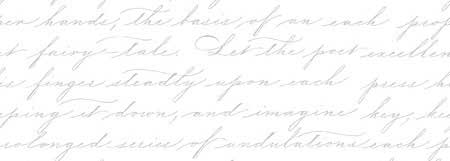 her hands, the basis of an each prof
st fairy-tale. Let the poet excellen
finger steadly upon each press h
eping it down, and imagine key, ke
rolonged series of undulations each p